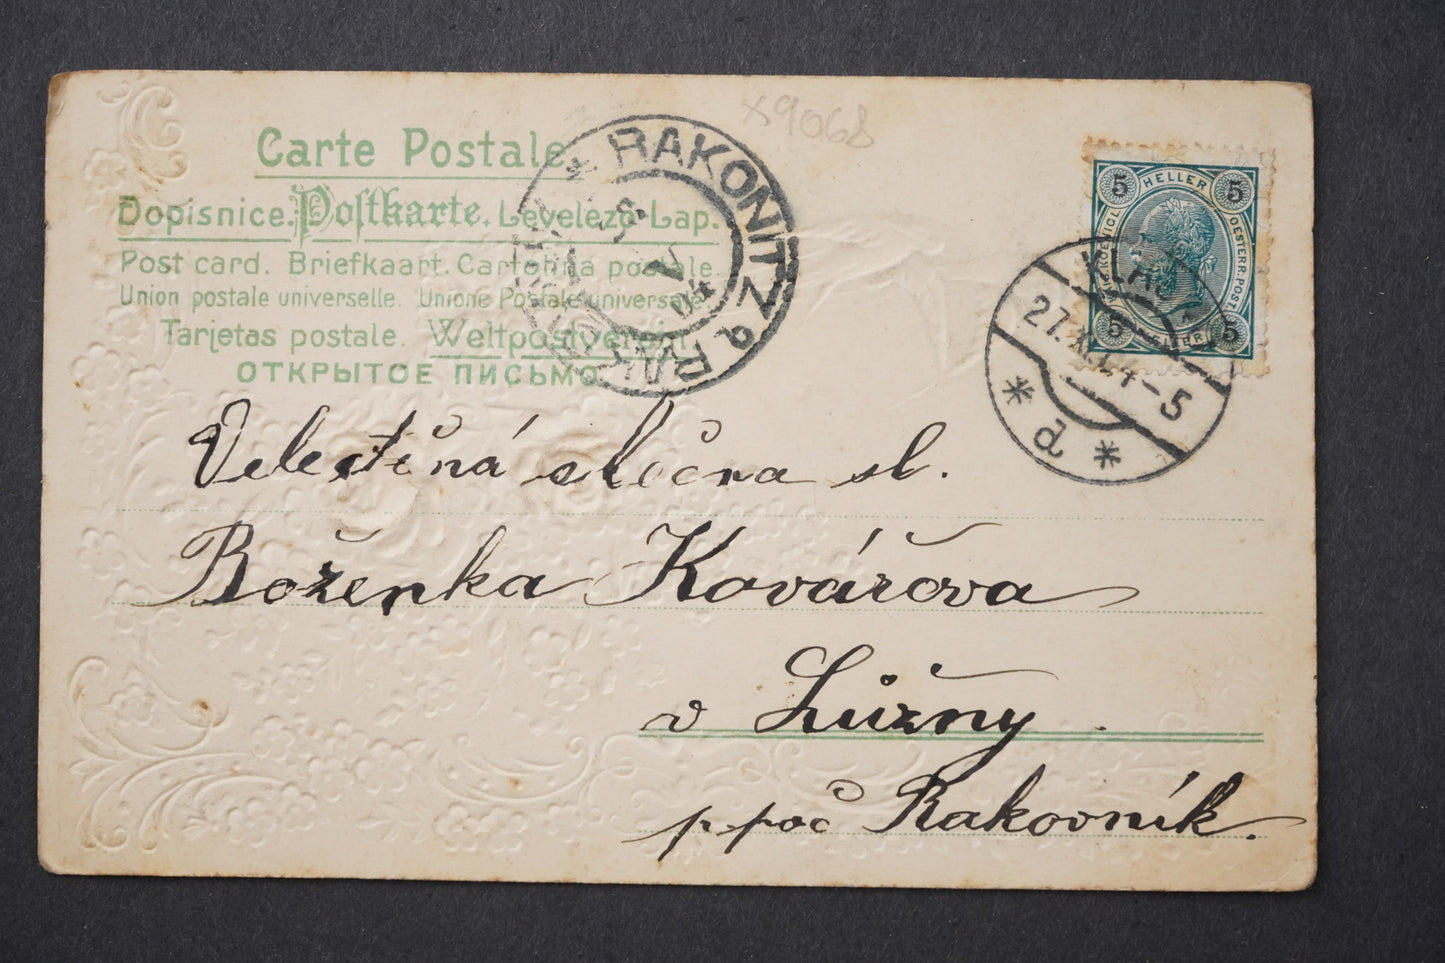 x9068
Carte Postale
Dopisnice. Postkarte. Levelező-Lap.
Post card. Briefkaart. Cartolina postale.
Union postale universelle. Unione Postale universale
Tarjetas postale. Weltpostverein.
ОТКРЫТОЕ ПИСЬМО
RAKONITZ
5 HELLER 5
5 5
27. XI. 4-5
* a *
Velectěná slečna sl.
Boženka Kovářova
v Lužny
p poč Rakovník.